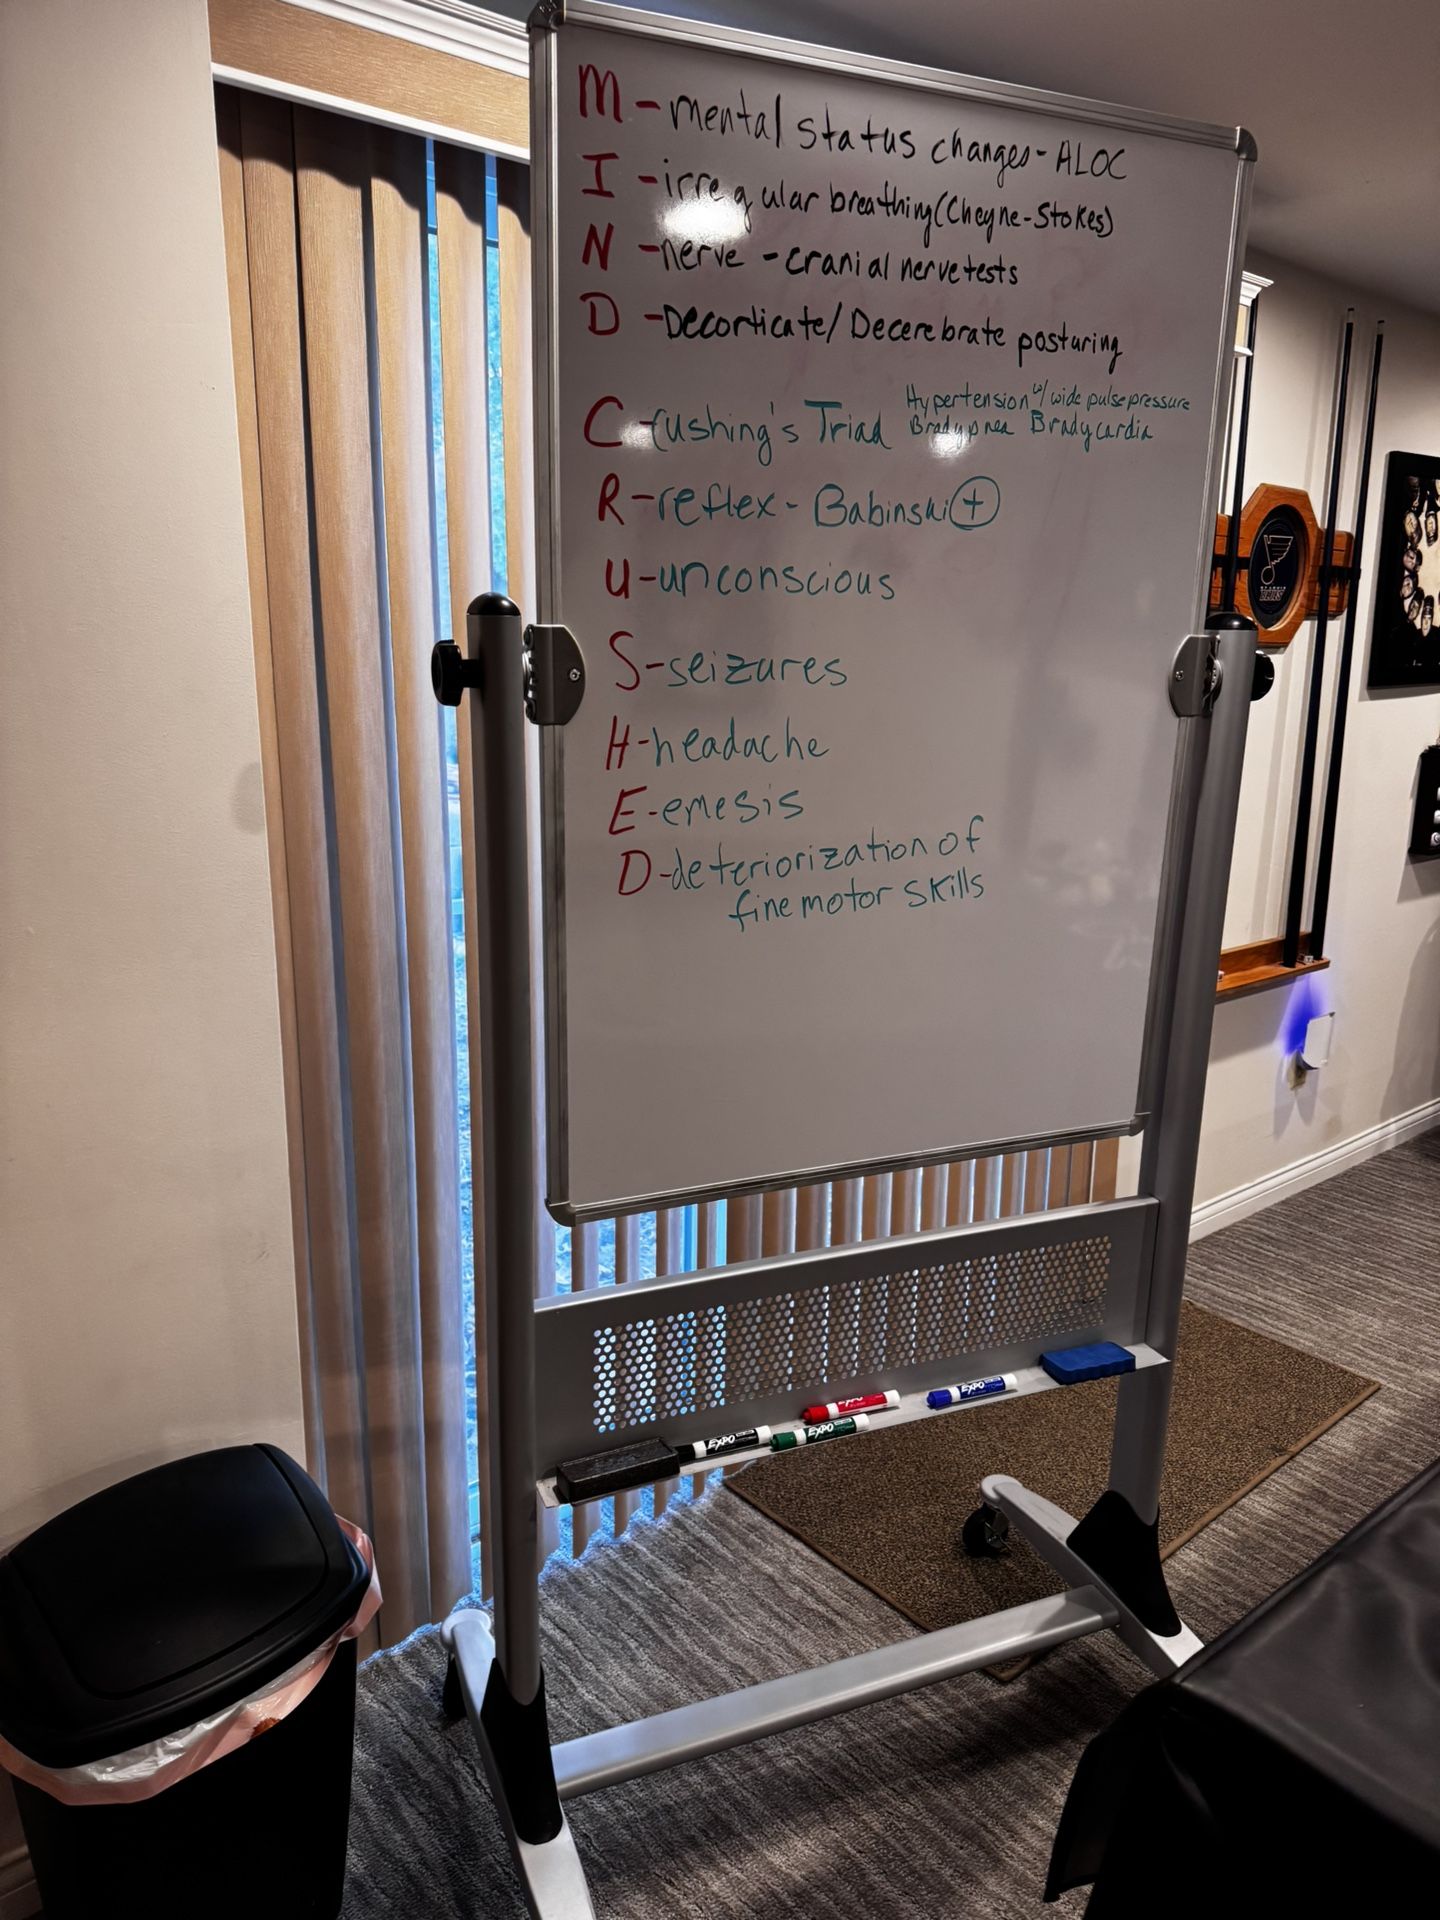 M - mental status changes - ALOC
I - irregular breathing (Cheyne-Stokes)
N - nerve - cranial nerve tests
D - Decorticate/Decerebrate posturing
C - Cushing's Triad Hypertension w/ wide pulse pressure
Bradypnea Bradycardia
R - reflex - Babinski +
U - unconscious
S - seizures
H - headache
E - emesis
D - deteriorization of
fine motor skills
EXPO
EXPO
EXPO
EXPO